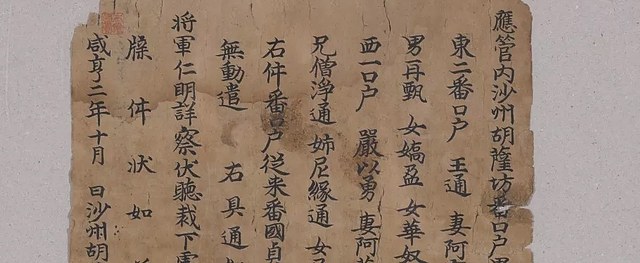 應管内沙州胡薩坊番口户
東二番口户 王通 妻阿
男再甄 女嬌盈 女華奴
西一口户 嚴以勇 妻阿
兄僧淨通 姉尼緣通 女
右件番户從来番國貞
無動遣 右具通
將軍仁明詳察伏聽裁下
牒件状如
咸亨二年十月 日沙州胡